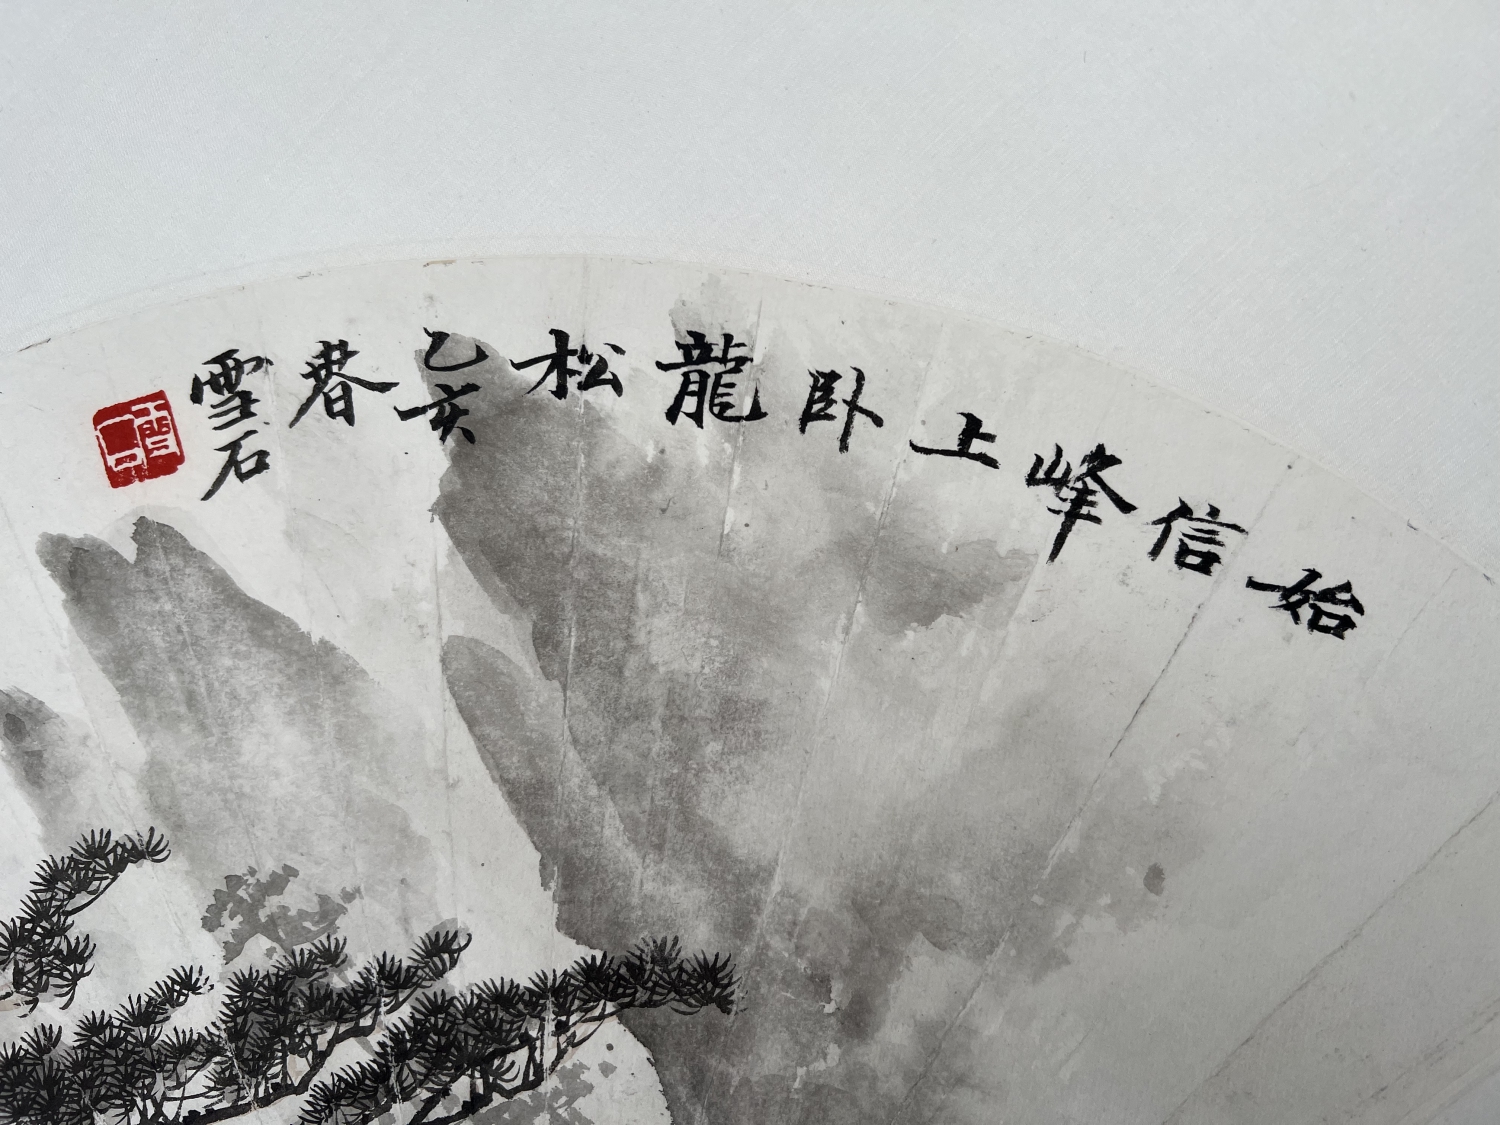 始信峰上臥龍松乙亥春雪石